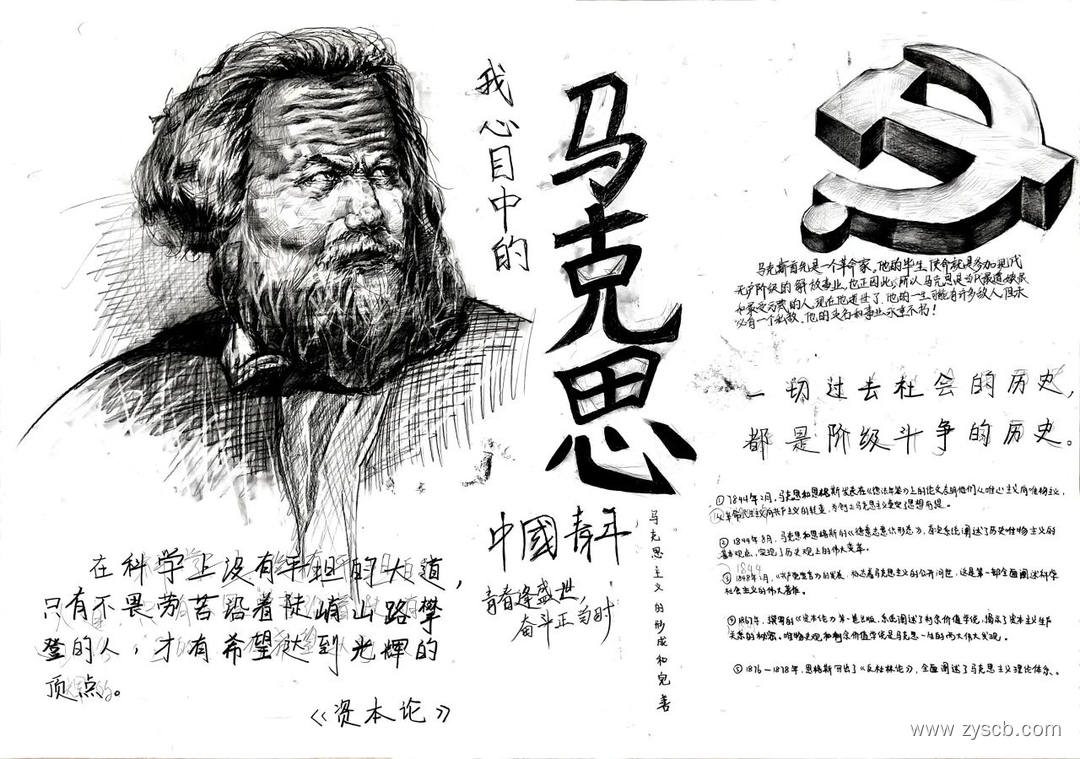 我心目中的
马克思
马克斯首先是一个革命家,他的毕生使命就是参加现代
无产阶级的解放事业,也正因此,所以马克思是当代最遭嫉恨
和最受污蔑的人,现在他逝世了,他的一生可能有许多敌人,但未
必有一个私敌。他的英名和事业永垂不朽!
一切过去社会的历史,
都是阶级斗争的历史。
在科学上没有平坦的大道,
只有不畏劳苦沿着陡峭山路攀
登的人,才有希望达到光辉的
顶点。
《资本论》
中國青年,
青春逢盛世,
奋斗正当时
马克思主义的形成和完善
①1844年2月,马克思和恩格斯发表在《德法年鉴》上的论文表明他们从唯心主义向唯物主义,
从革命民主主义向共产主义的转变,
② 马克思和恩格斯的《德意志意识形态》, 系统阐述了历史唯物主义的
基本观点,实现了历史观上的伟大变革。
1844
③1848年2月,《共产党宣言》的发表,标志着马克思主义的公开问世,这是第一部全面阐述科学
社会主义的伟大著作。
④1867年, 《资本论》第一卷出版,系统阐述了剩余价值学说,揭示了资本主义生产
关系的秘密。唯物史观和剩余价值学说是马克思一生的两大伟大发现。
⑤1876—1878年,恩格斯写出了《反杜林论》,全面阐述了马克思主义理论体系。
www.zyscb.com